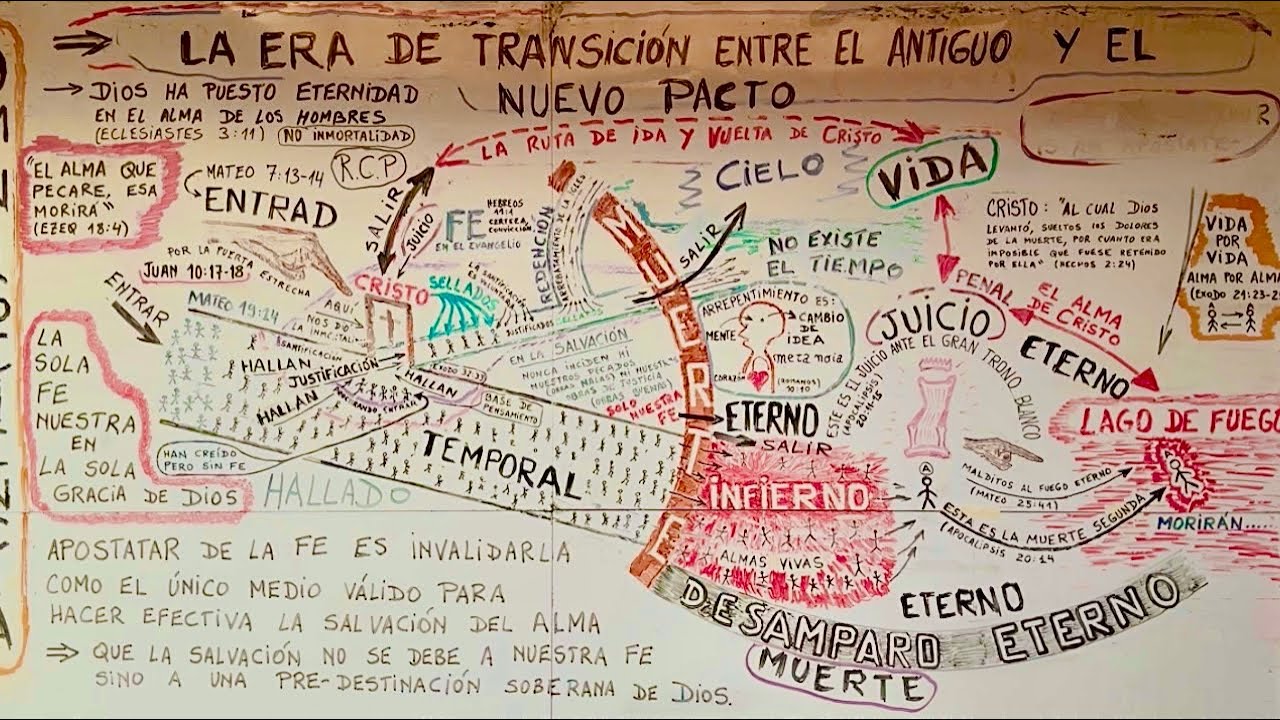 LA ERA DE TRANSICIÓN ENTRE EL ANTIGUO Y EL
NUEVO PACTO
DIOS HA PUESTO ETERNIDAD
EN EL ALMA DE LOS HOMBRES
(ECLESIASTES 3:11) (NO INMORTALIDAD)
"EL ALMA QUE
PECARE, ESA
MORIRA"
(EZEQ 18:4)
MATEO 7:13-14
R.C.P
ENTRAD
POR LA PUERTA ESTRECHA
JUAN 10:17-18
ENTRAR
MATEO 19:24
LA RUTA DE IDA Y VUELTA DE CRISTO
SALIR
JUICIO
FE
HEBREOS
11:1
CERTEZA,
CONVICCIÓN
EN EL EVANGELIO
CRISTO
SELLADOS
REDENCIÓN
JUSTIFICADOS
CIELO
VIDA
SALIR
NO EXISTE
EL TIEMPO
CRISTO: "AL CUAL DIOS
LEVANTÓ, SUELTOS LOS DOLORES
DE LA MUERTE, POR CUANTO ERA
IMPOSIBLE QUE FUESE RETENIDO
POR ELLA" (HECHOS 2:24)
VIDA
POR
VIDA
ALMA POR ALMA
MUERTE
AQUI
SANTIFICACIÓN
HALLAN
JUSTIFICACIÓN
HALLAN
HALLAN
(EXODO 32:33)
EN LA SALVACIÓN
NUNCA INCIDEN NI
NUESTROS PECADOS
(OBRAS MALAS) NI NUESTRAS
OBRAS DE JUSTICIA
(OBRAS BUENAS)
SOLO
NUESTRA
FE
BASE DE
PENSAMIENTO
ARREPENTIMIENTO ES:
CAMBIO
DE
IDEA
MENTE
metanoia
CORAZÓN
(ROMANOS)
10:10
PENAL
JUICIO
ESTE ES EL JUICIO ANTE EL GRAN TRONO BLANCO
EL ALMA
DE CRISTO
ETERNO
LA
SOLA
FE
NUESTRA
EN
LA SOLA
GRACIA DE DIOS
HAN CREÍDO
PERO SIN FE
HALLADO
TEMPORAL
ETERNO
SALIR
INFIERNO
ALMAS VIVAS
LAGO DE FUEGO
MALDITOS AL FUEGO ETERNO
(MATEO 25:41)
ESTA ES LA MUERTE SEGUNDA
(APOCALIPSIS 20:14
MORIRÁN.....
ETERNO
DESAMPARO ETERNO
MUERTE
APOSTATAR DE LA FE ES INVALIDARLA
COMO EL ÚNICO MEDIO VÁLIDO PARA
HACER EFECTIVA LA SALVACIÓN DEL ALMA
QUE LA SALVACIÓN NO SE DEBE A NUESTRA FE
SINO A UNA PRE-DESTINACIÓN SOBERANA DE DIOS.